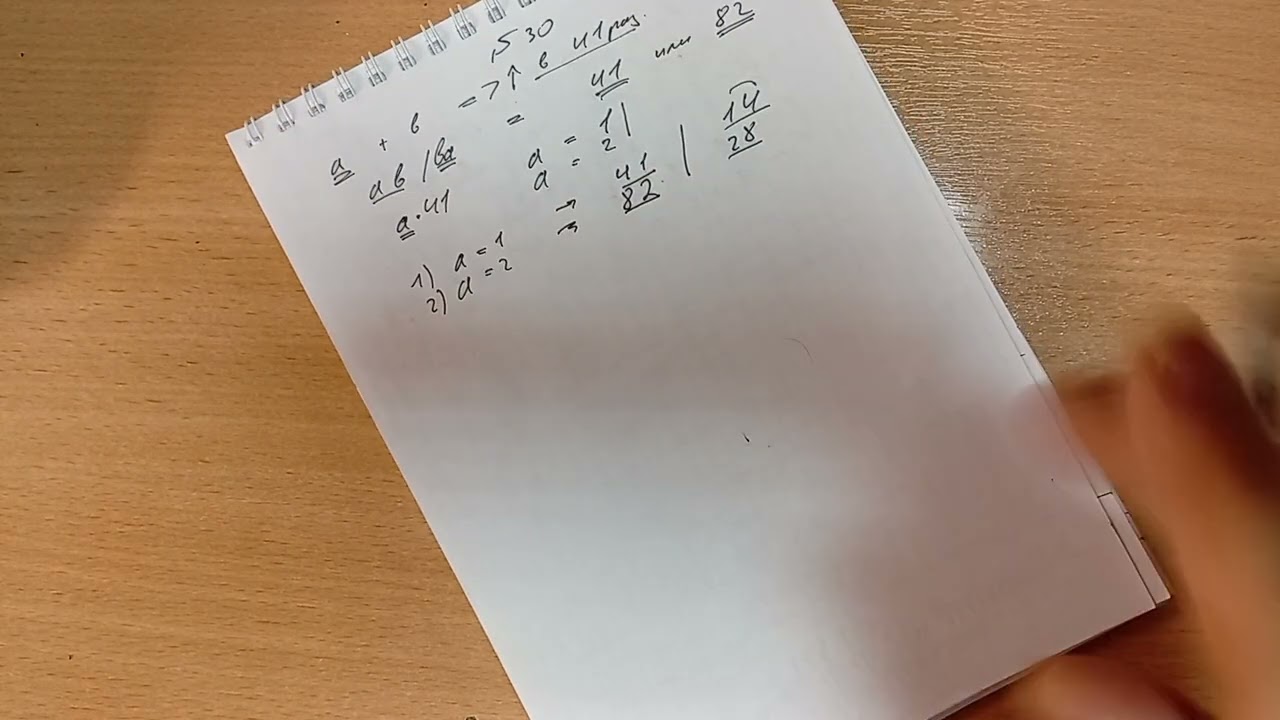 530
а + в => ↑ в 41 раз.
ав / ва = 41 или 82
а · 41 а = 1 |
а = 2
1) а = 1 → 41 | 14
2) а = 2 → 82 28